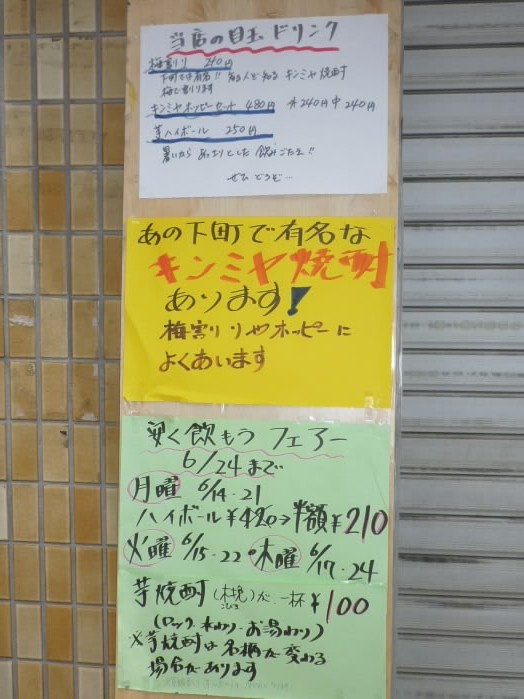 当店の目玉ドリンク
梅割り 240円
下町で有名!! 知る人ぞ知る キンミヤ焼酎
梅で割ります
キンミヤホッピーセット 480円 外240円 中240円
芋ハイボール 250円
暑いから あっさりとした 飲みごたえ!!
ぜひどうぞ…
あの下町で有名な
キンミヤ焼酎
あります!
梅割りやホッピーに
よくあいます
安く飲もう フェアー
6/24まで
月曜 6/14・21
ハイボール ¥420→半額¥210
火曜 6/15・22・木曜 6/17・24
芋焼酎 (木挽)が、一杯 ¥100
こびき
(ロック・水わり・お湯わり)
※芋焼酎は名柄が変わる
場合があります